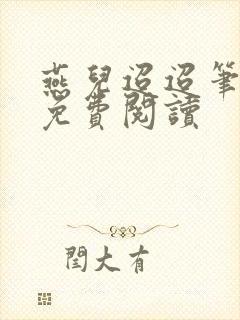 燕兒迢迢筆
免費閱讀
閏大有